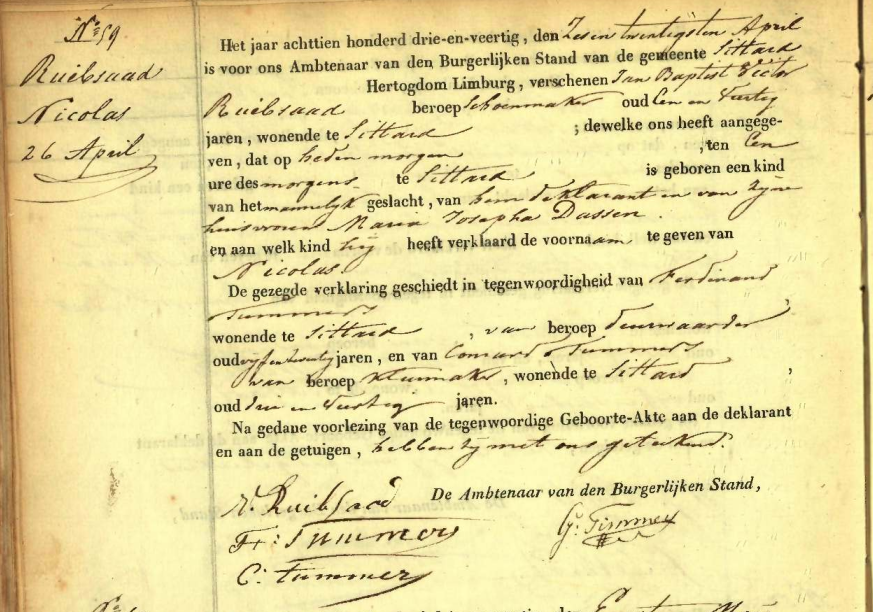 N° 59
Ruibsaad
Nicolas
26 April
Het jaar achttien honderd drie-en-veertig, den Zes en twintigsten April
is voor ons Ambtenaar van den Burgerlijken Stand van de gemeente Sittard
Hertogdom Limburg, verschenen Jan Baptist Victor
Ruibsaad beroep Schoenmaker oud Een en Veertig
jaren, wonende te Sittard ; dewelke ons heeft aangege-
ven, dat op heden morgen , ten Een
ure des morgens te Sittard is geboren een kind
van het mannelyk geslacht, van hem deklarant en van zyne
huisvrouw Maria Josepha Dassen.
en aan welk kind hy heeft verklaard de voornaam te geven van
Nicolas
De gezegde verklaring geschiedt in tegenwoordigheid van Ferdinand
Tummers
wonende te Sittard , van beroep deurwaarder
oud vyf en twentig jaren, en van Conrard Tummers
van beroep , wonende te Sittard ,
oud drie en Veertig jaren.
Na gedane voorlezing van de tegenwoordige Geboorte-Akte aan de deklarant
en aan de getuigen, hebben zy met ons geteekend.
De Ambtenaar van den Burgerlijken Stand,
V. Ruibsaad
Fr: Tummers
C: Tummers